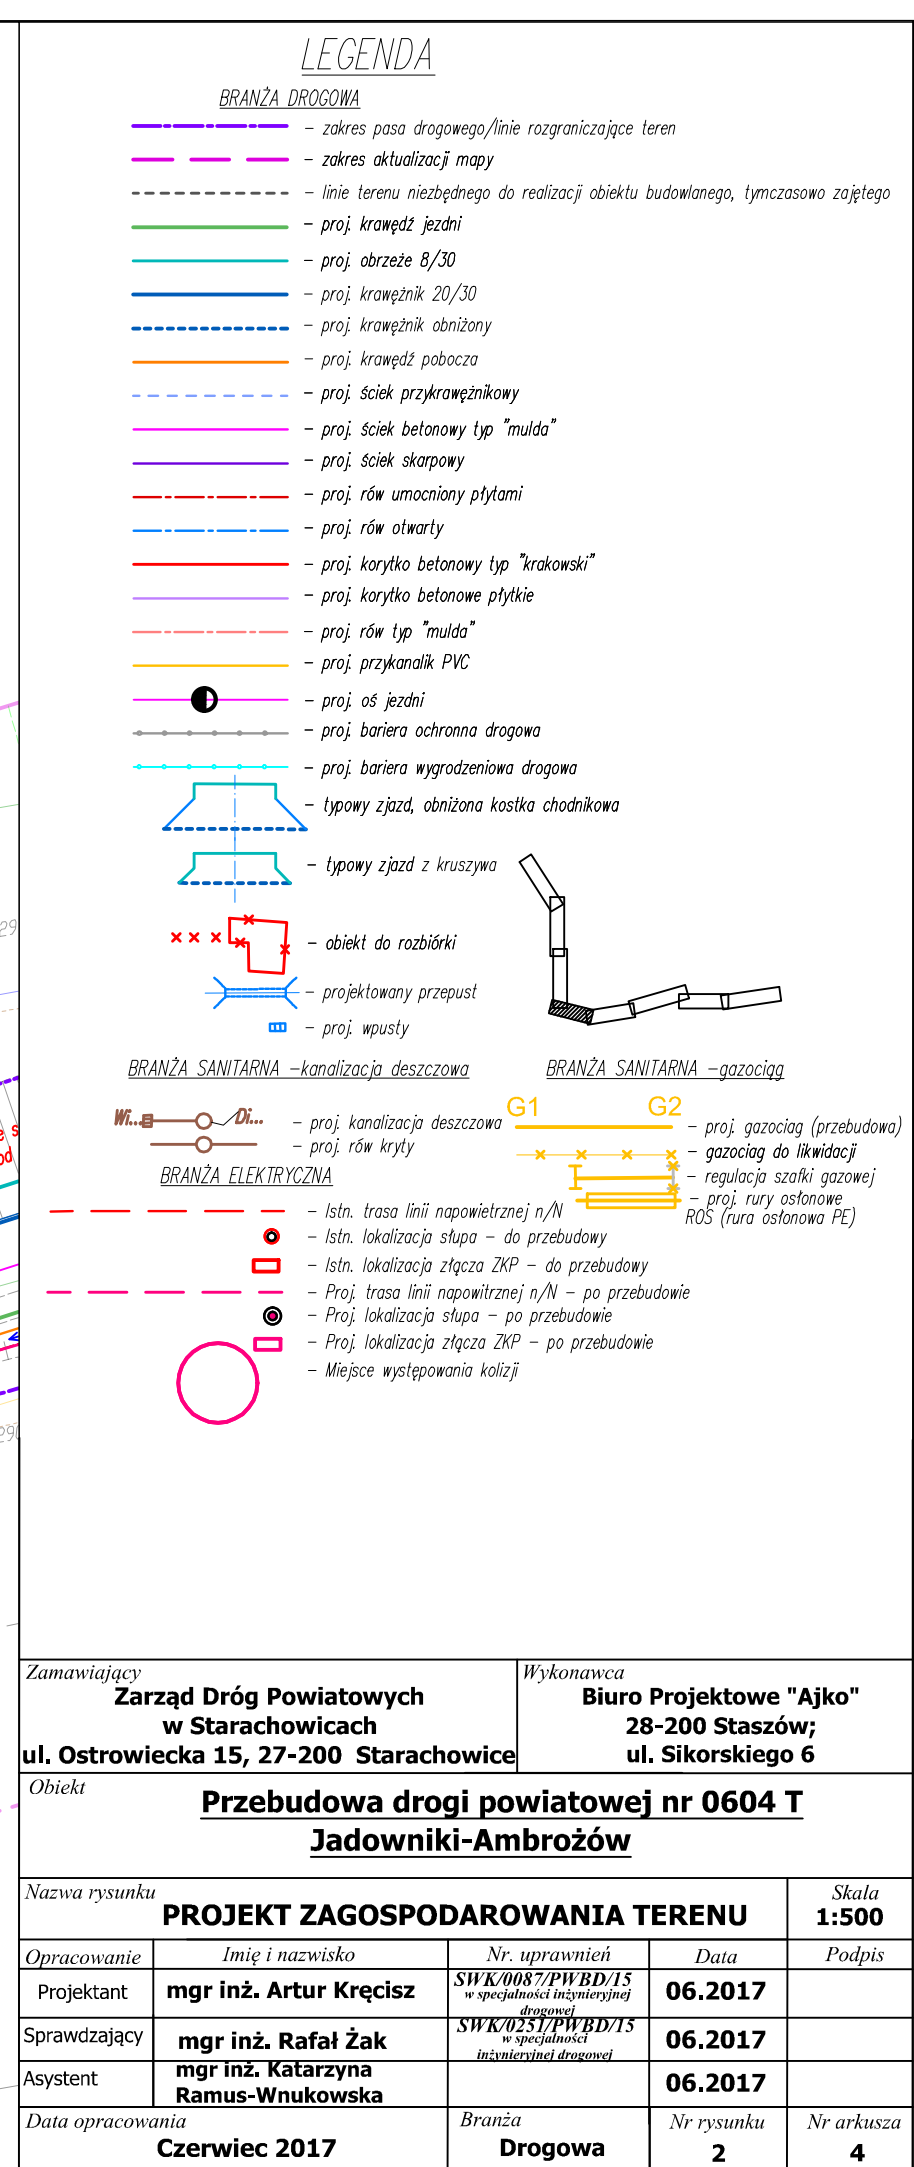 LEGENDA
BRANŻA DROGOWA
- zakres pasa drogowego/linie rozgraniczające teren
- zakres aktualizacji mapy
- linie terenu niezbędnego do realizacji obiektu budowlanego, tymczasowo zajętego
- proj. krawędź jezdni
- proj. obrzeże 8/30
- proj. krawężnik 20/30
- proj. krawężnik obniżony
- proj. krawędź pobocza
- proj. ściek przykrawężnikowy
- proj. ściek betonowy typ "mulda"
- proj. ściek skarpowy
- proj. rów umocniony płytami
- proj. rów otwarty
- proj. korytko betonowy typ "krakowski"
- proj. korytko betonowe płytkie
- proj. rów typ "mulda"
- proj. przykanalik PVC
- proj. oś jezdni
- proj. bariera ochronna drogowa
- proj. bariera wygrodzeniowa drogowa
- typowy zjazd, obniżona kostka chodnikowa
- typowy zjazd z kruszywa
- obiekt do rozbiórki
- projektowany przepust
- proj. wpusty
BRANŻA SANITARNA -kanalizacja deszczowa
Wi... Di...
- proj. kanalizacja deszczowa
- proj. rów kryty
BRANŻA SANITARNA -gazociąg
G1 G2
- proj. gazociag (przebudowa)
- gazociag do likwidacji
- regulacja szafki gazowej
- proj. rury osłonowe
ROS (rura osłonowa PE)
BRANŻA ELEKTRYCZNA
- Istn. trasa linii napowietrznej n/N
- Istn. lokalizacja słupa - do przebudowy
- Istn. lokalizacja złącza ZKP - do przebudowy
- Proj. trasa linii napowitrznej n/N - po przebudowie
- Proj. lokalizacja słupa - po przebudowie
- Proj. lokalizacja złącza ZKP - po przebudowie
- Miejsce występowania kolizji
Zamawiający
Zarząd Dróg Powiatowych
w Starachowicach
ul. Ostrowiecka 15, 27-200 Starachowice
Wykonawca
Biuro Projektowe "Ajko"
28-200 Staszów;
ul. Sikorskiego 6
Obiekt
Przebudowa drogi powiatowej nr 0604 T
Jadowniki-Ambrożów
Nazwa rysunku
PROJEKT ZAGOSPODAROWANIA TERENU
Skala
1:500
Opracowanie Imię i nazwisko Nr. uprawnień Data Podpis
Projektant mgr inż. Artur Kręcisz SWK/0087/PWBD/15 06.2017
w specjalności inżynieryjnej
drogowej
Sprawdzający mgr inż. Rafał Żak SWK/0251/PWBD/15 06.2017
w specjalności
inżynieryjnej drogowej
Asystent mgr inż. Katarzyna 06.2017
Ramus-Wnukowska
Data opracowania Branża Nr rysunku Nr arkusza
Czerwiec 2017 Drogowa 2 4